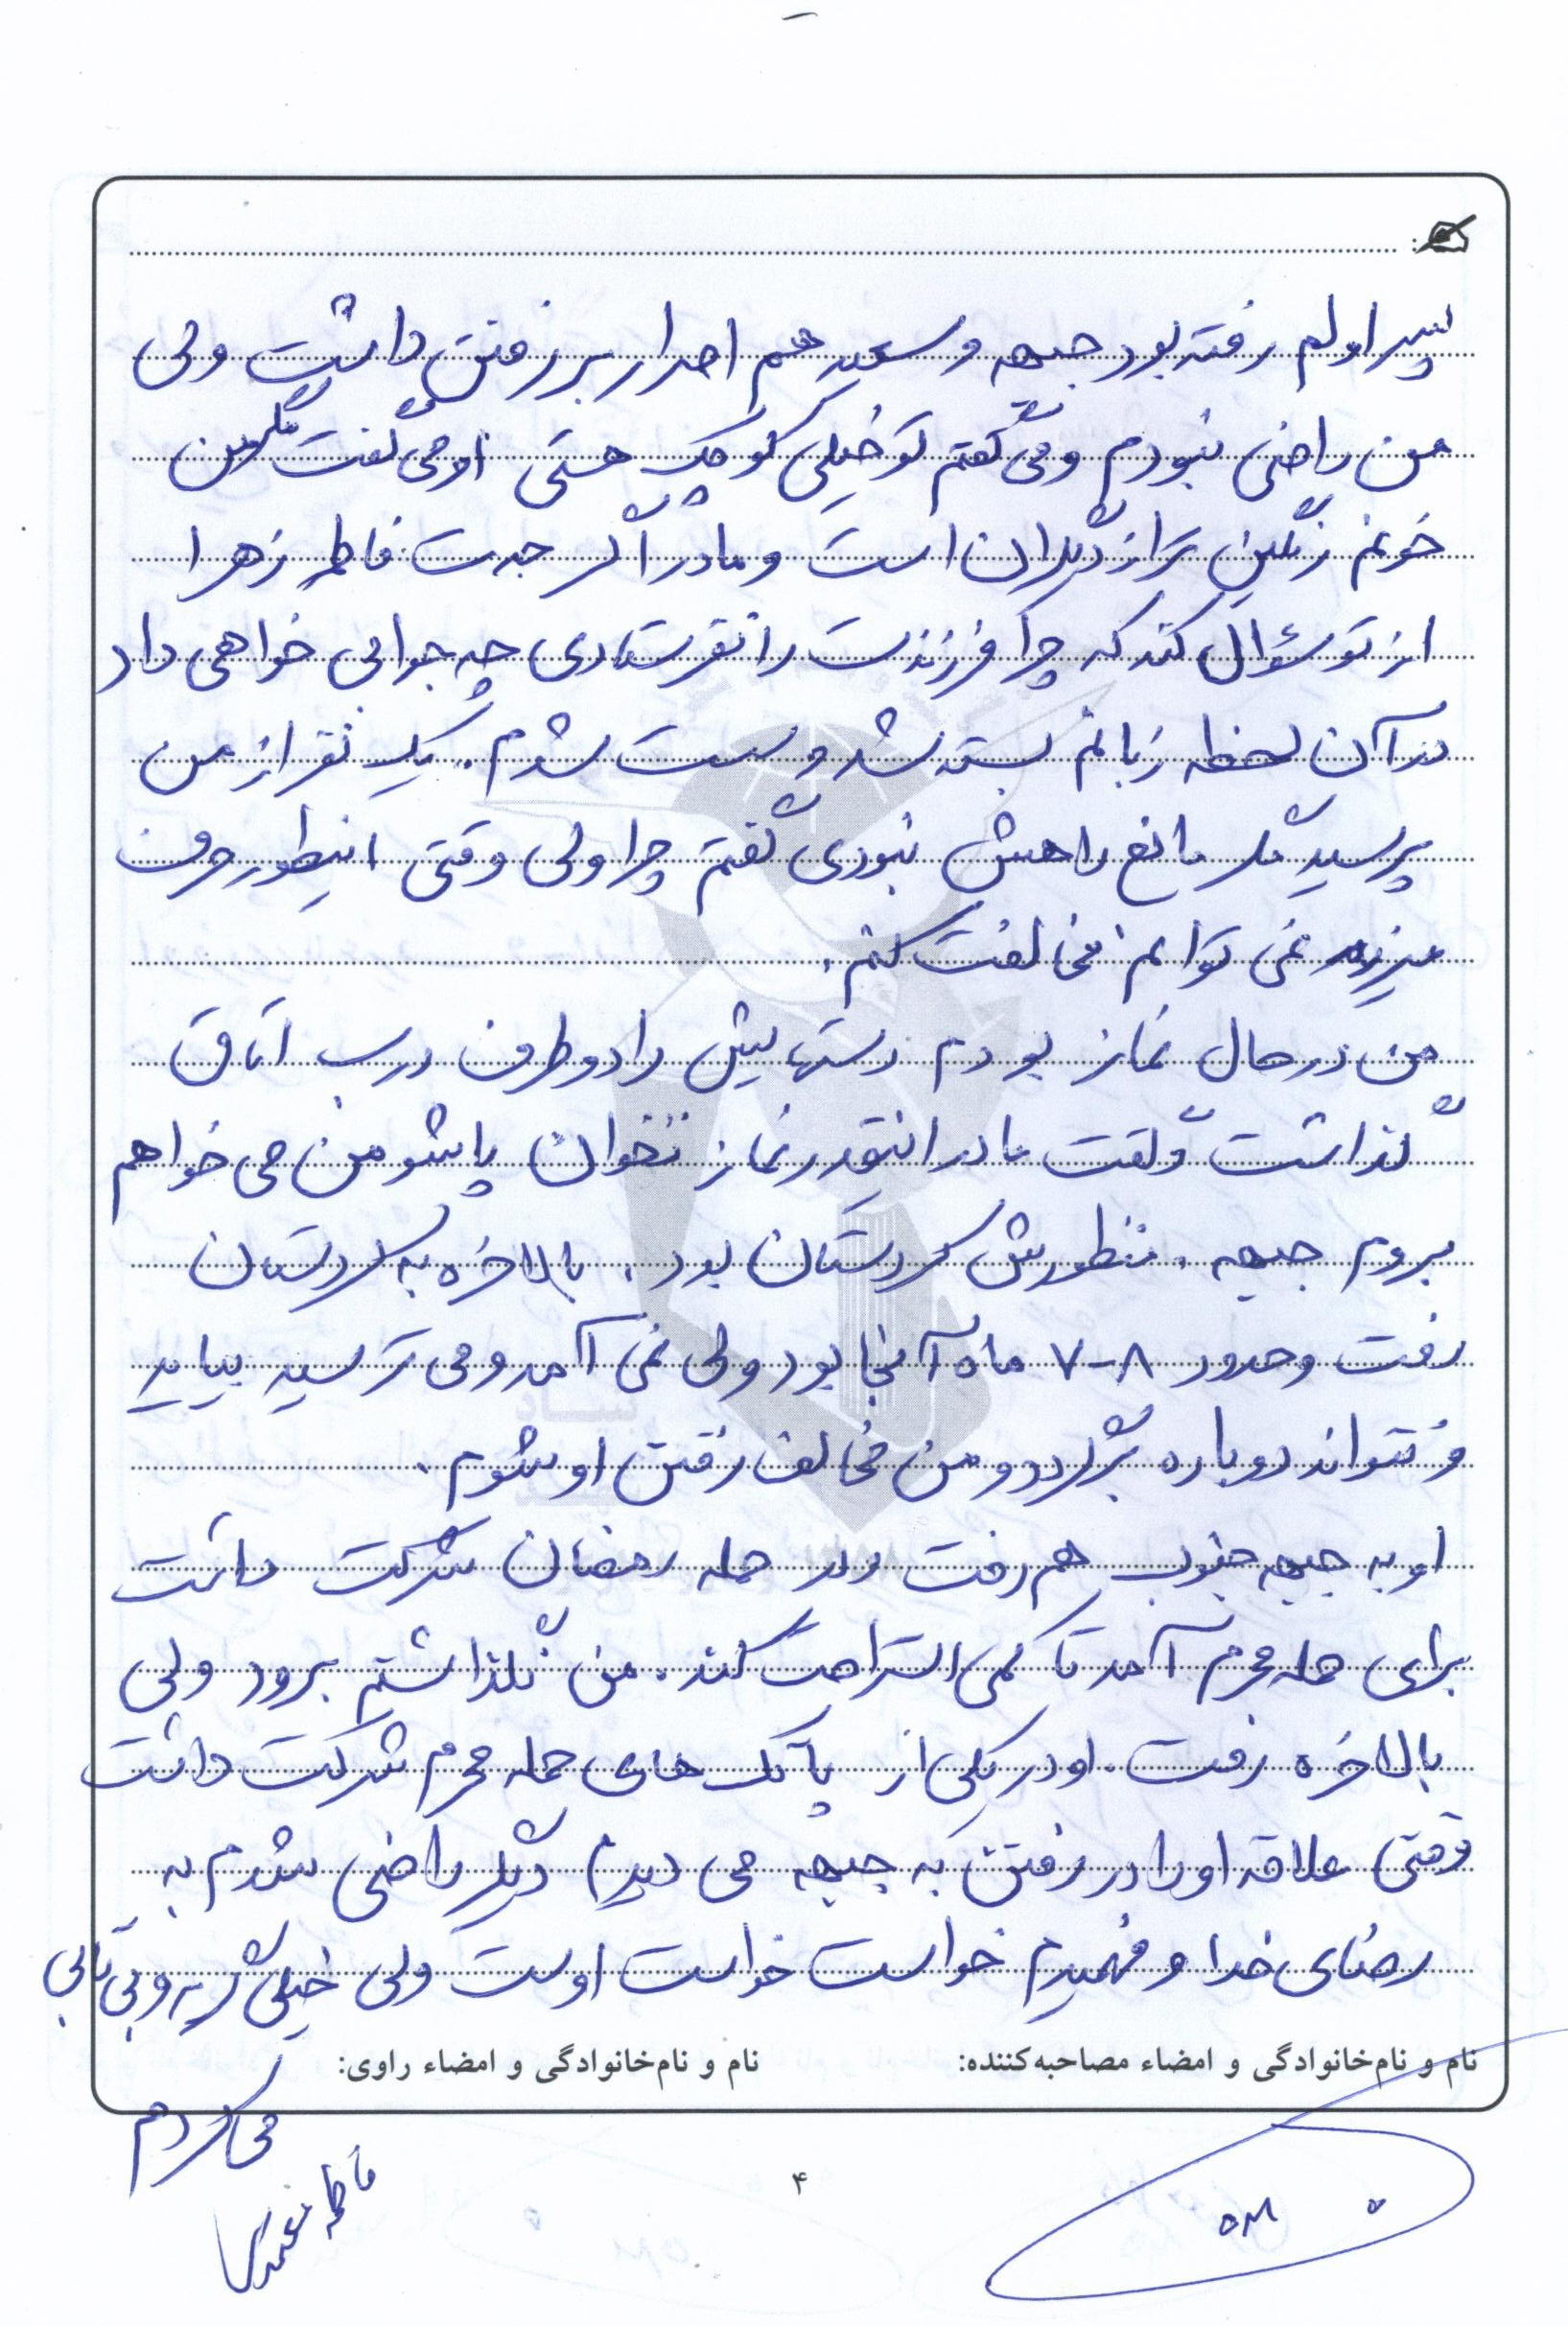 پسر اولم رفته بود جبهه و سعید هم اصرار بر رفتن داشت ولی
من راضی نبودم و می گفتم تو خیلی کوچک هستی او می گفت مگر من
خونم رنگین تر از دیگران است و مادر اگر جدت فاطمه زهرا
از تو سؤال کند که چرا فرزندت را نفرستادی چه جوابی خواهی داد
در آن لحظه زبانم بسته شد و سست شدم. یک نفر از من
پرسید مگر مانع راهش نبودی گفتم چرا ولی وقتی اینطور حرف
میزند نمی توانم مخالفت کنم.
من در حال نماز بودم دستهایش را دو طرف درب اتاق
گذاشت و گفت مادر اینقدر نماز نخوان پاشو من می خواهم
بروم جبهه. منظورش کردستان بود. بالاخره به کردستان
رفت و حدود ۸-۷ ماه آنجا بود ولی نمی آمد و می ترسید بیاید
و نتواند دوباره برگردد و من مخالف رفتن او شوم.
او به جبهه جنوب هم رفت و در حمله رمضان شرکت داشت
برای حمله محرم آمد تا کمی استراحت کند. من نگذاشتم برود ولی
بالاخره رفت. او در یکی از پاتک های حمله محرم شرکت داشت
وقتی علاقه او را در رفتن به جبهه می دیدم دیگر راضی شدم به
رضای خدا و فهمیدم خواست خواست اوست ولی خیلی گریه و بی تابی
می کردم
نام و نام‌خانوادگی و امضاء مصاحبه‌کننده:
نام و نام‌خانوادگی و امضاء راوی:
فاطمه
۴